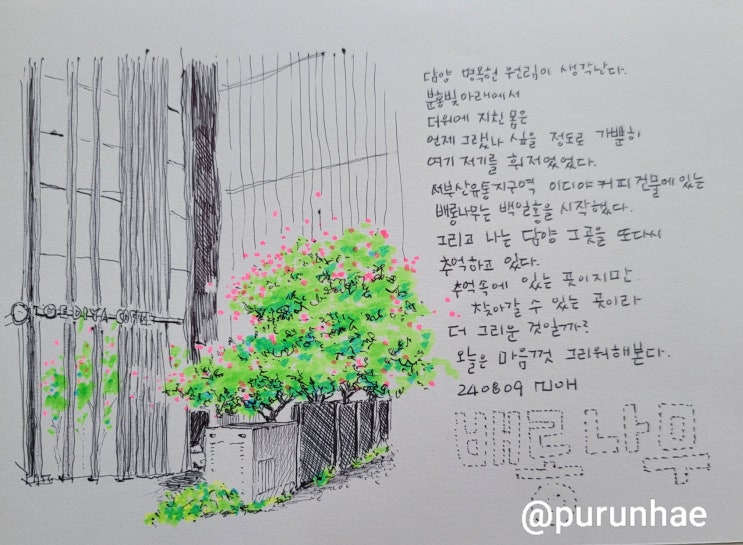 EDIYA COFFEE
담양 명옥헌 원림이 생각난다.
분홍빛 아래에서
더위에 지친 몸은
언제 그랬나 싶을 정도로 가뿐히
여기 저기를 휘저었었다.
서부산유통지구역 이디야 커피 건물에 있는
배롱나무는 백일홍을 시작했다.
그리고 나는 담양 그곳을 또다시
추억하고 있다.
추억속에 있는 곳이지만
찾아갈 수 있는 곳이라
더 그리운 것일까?
오늘은 마음껏 그리워해본다.
240809
배롱나무
@purunhae